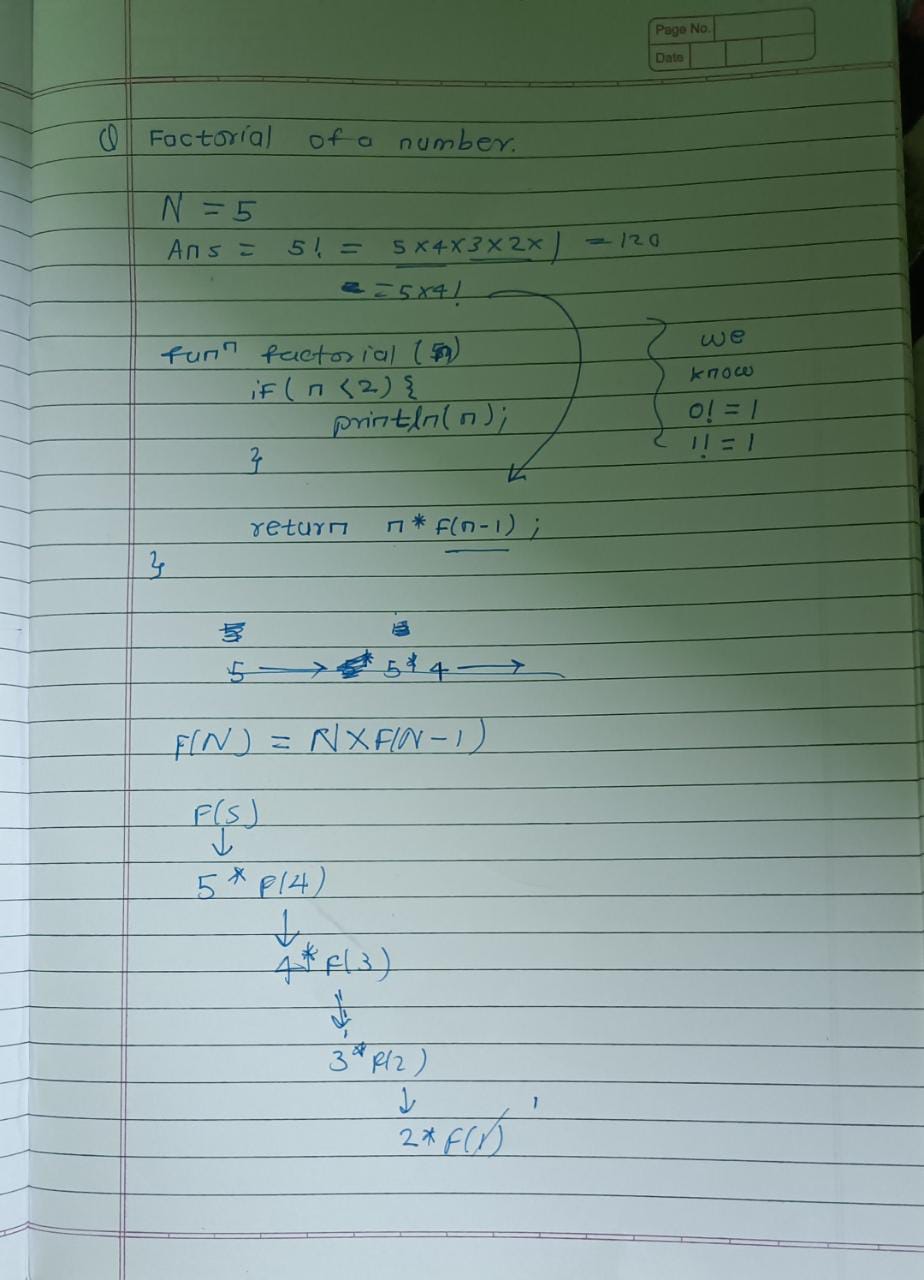 Page No.
Date
Q Factorial of a number.
N = 5
Ans = 5! = 5×4×3×2×1 = 120
= 5×4!
funⁿ factorial (n)
if(n<2){
println(n);
}
we
know
0! = 1
1! = 1
return n * F(n-1);
}
5 → 5*4 →
F(N) = N×F(N-1)
F(5)
↓
5 * F(4)
↓
4 * F(3)
↓
3 * F(2)
↓
2 * F(1) 1